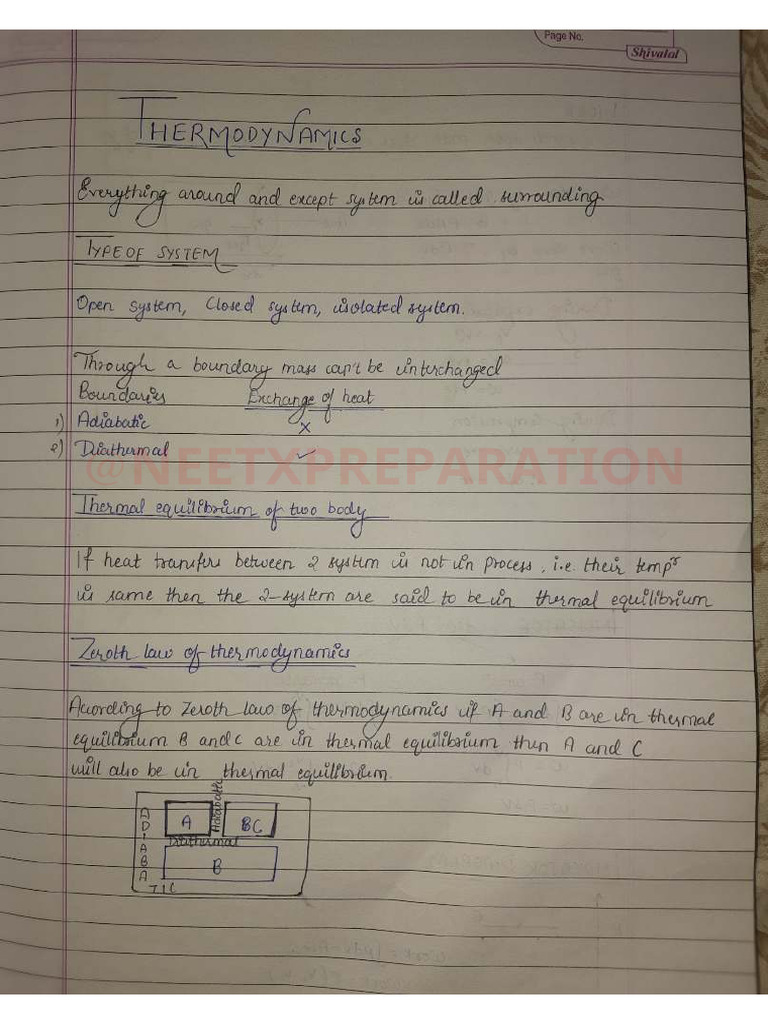 Page No.
Shivalal
THERMODYNAMICS
Everything around and except system is called surrounding
TYPE OF SYSTEM
Open system, Closed system, isolated system.
Through a boundary mass can't be interchanged
Boundaries Exchange of heat
1) Adiabatic ×
2) Diathermal ✓
@NEETXPREPARATION
Thermal equilibrium of two body
If heat transfers between 2 system is not in process, i.e. their tempr
is same then the 2-system are said to be in thermal equilibrium
Zeroth law of thermodynamics
According to Zeroth law of thermodynamics if A and B are in thermal
equilibrium B and C are in thermal equilibrium then A and C
will also be in thermal equilibrium.
ADIABATIC
A
Adiabatic
BC
Diathermal
B